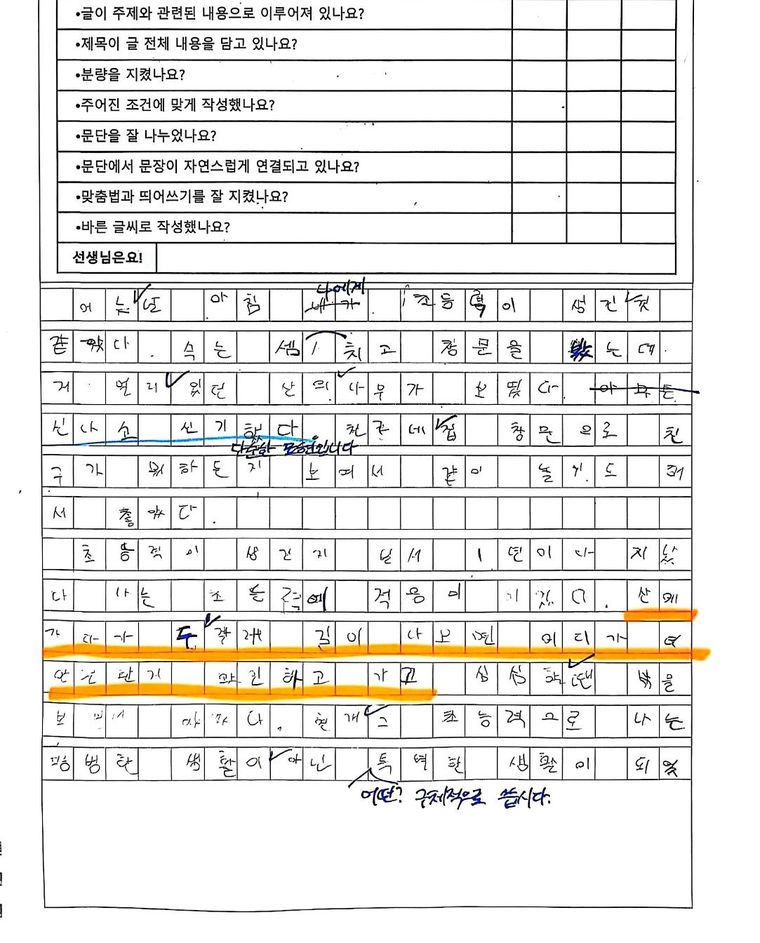 •글이 주제와 관련된 내용으로 이루어져 있나요?
•제목이 글 전체 내용을 담고 있나요?
•분량을 지켰나요?
•주어진 조건에 맞게 작성했나요?
•문단을 잘 나누었나요?
•문단에서 문장이 자연스럽게 연결되고 있나요?
•맞춤법과 띄어쓰기를 잘 지켰나요?
•바른 글씨로 작성했나요?
선생님은요!
나에게
어느년 아침 내가 초등력이 생긴것
같았다. 치고 창문을 는데
거 있던 산의나무가 보였다.
신나고 신기했다. 친구네집 창문으로 친
단순한 표현입니다
구가 뭐하는지 보며서 같이 놀기도 해
서 좋았다.
초능력이 생긴지 1년이다 지났
다 나는 초능력에 적응이 산에
가다가 두 길이 나오면 어디가 더
하고 가고 심심할땐 을
초능력으로 나는
평범한 생활이아닌 특별한 생활이 되었
어떤? 구체적으로 씁시다.